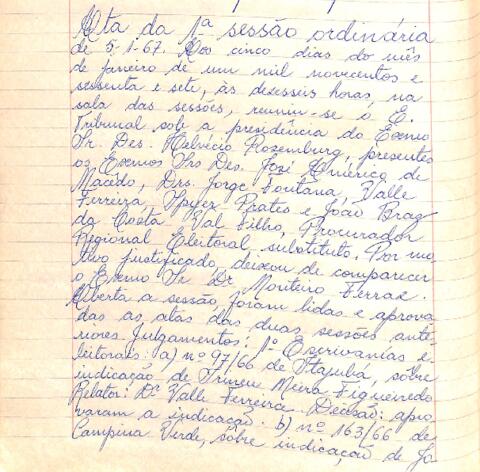 Ata da 1ª sessão ordinária
de 5-1-67. Aos cinco dias do mês
de janeiro de um mil novecentos e
sessenta e sete, às dezesseis horas, na
sala das sessões, reuniu-se o E.
Tribunal sob a presidência do Exmo
Sr. Des. Helvécio Rosemburg, presentes
os Exmos Srs Des. José Américo de
Macêdo, Drs. Jorge Fontâna, Valle
Ferreira, Prates e João Braz
da Costa Val Filho, Procurador
Regional Eleitoral substituto. Por mo
tivo justificado, deixou de comparecer
o Exmo Sr Dr. Monteiro Ferraz.
Aberta a sessão, foram lidas e aprova
das as atas das duas sessões ante
riores. Julgamentos: 1º Escrivanias e
leitorais: a) nº 97/66 de Itajubá, sôbre
indicação de Irineu Meira Figueiredo
Relator: Dr Valle Ferreira. Decisão: apro
varam a indicação. b) nº 163/66 de
Campina Verde, sôbre indicação de Jo